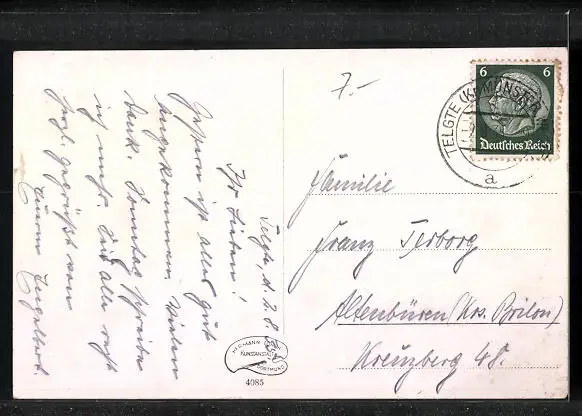 Telgte, d. 2.8.
Ihr Lieben!
Gestern ist alles gut
angekommen. Vielen
Dank. Sonntag schreibe
ich mehr. Euch alle recht
herzl. gegrüßt von
Eurem Engelbert
7.-
6 6
Deutsches Reich
TELGTE (KR MÜNSTER
a
Familie
Franz Terborg
Altenbüren (Krs. Brilon)
Kreuzberg 48.
HERMANN
KUNSTANSTALT
DORTMUND
4085